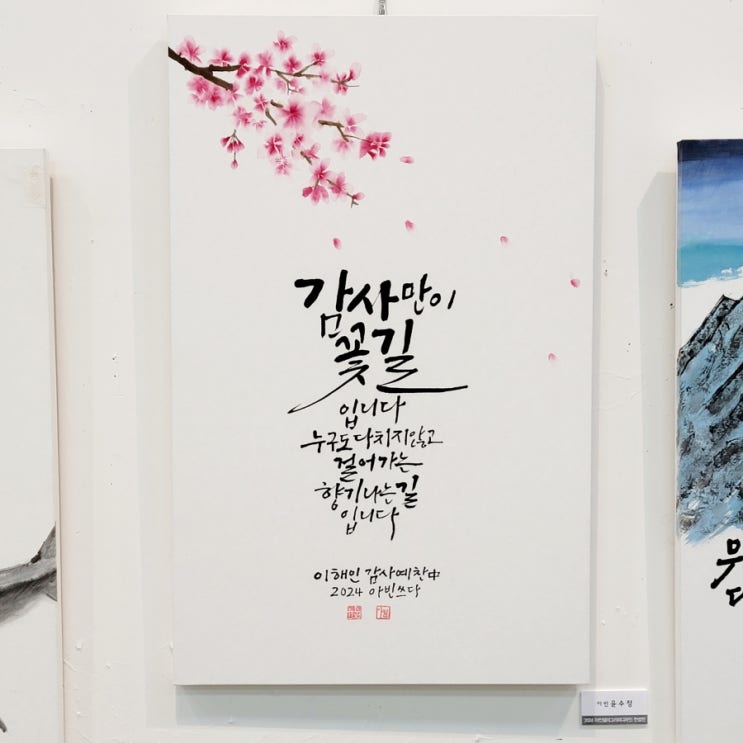 감사만이
꽃길
입니다
누구도다치지않고
걸어가는
향기나는길
입니다
이해인 감사예찬中
2024 아빈쓰다
아빈 윤수정